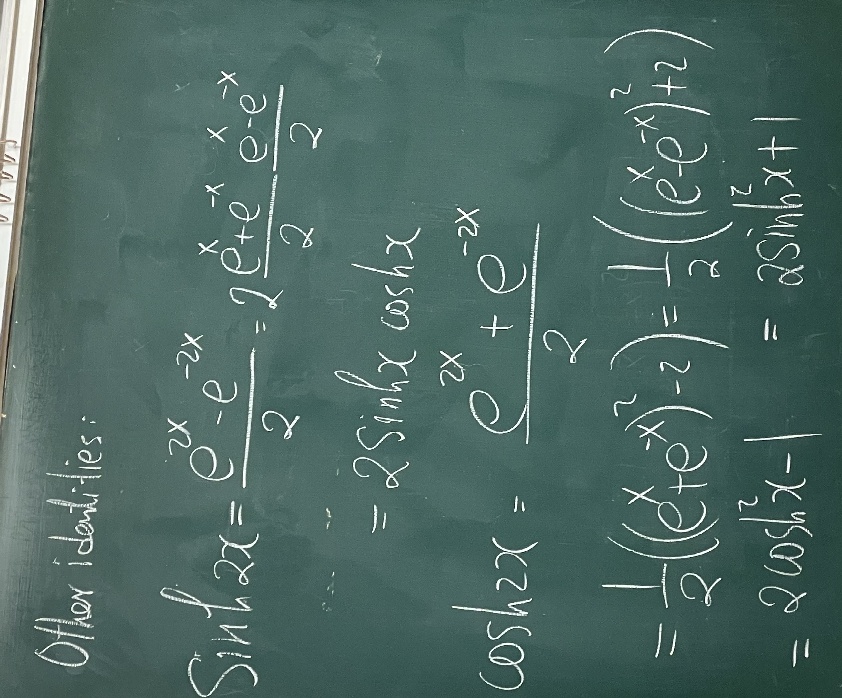 Other identities:
Sinh 2x = \frac{e^{2x} - e^{-2x}}{2} = 2 \frac{e^x + e^{-x}}{2} \cdot \frac{e^x - e^{-x}}{2}
= 2 Sinh x cosh x
cosh 2x = \frac{e^{2x} + e^{-2x}}{2}
= \frac{1}{2}((e^x + e^{-x})^2 - 2) = \frac{1}{2}((e^x - e^{-x})^2 + 2)
= 2 cosh^2 x - 1 = 2 sinh^2 x + 1